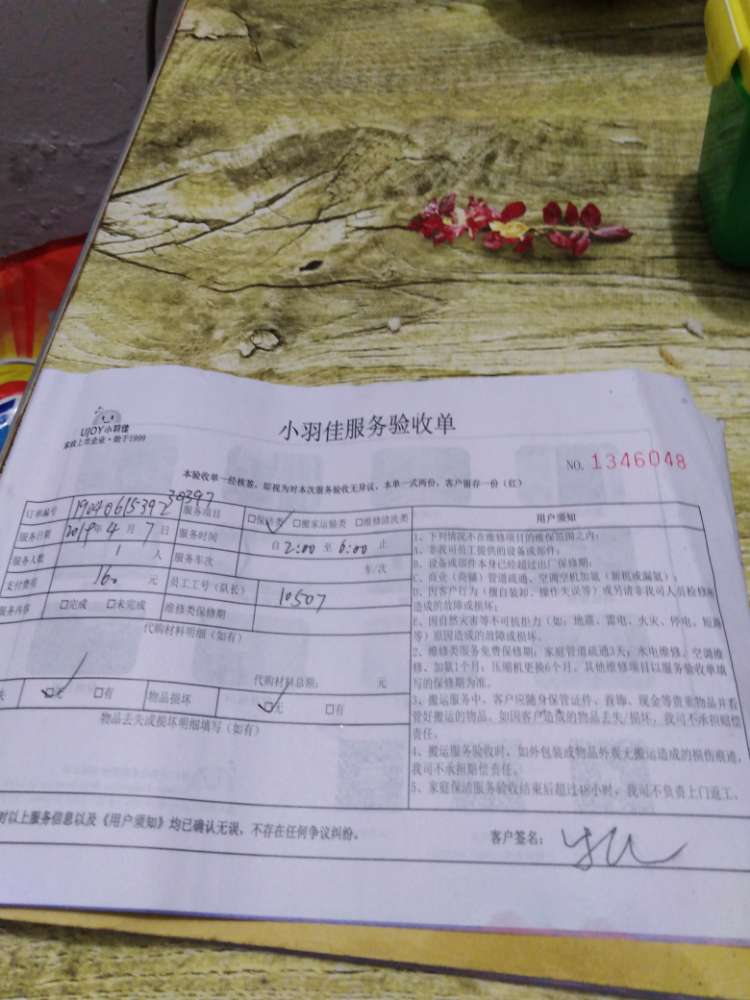 UJOY小羽佳
家政上市企业·始于1999
小羽佳服务验收单
NO. 1346048
本验收单一经核签，即视为对本次服务验收无异议，本单一式两份，客户留存一份（红）
订单编号 服务项目 □保洁类 □搬家运输类 □维修清洗类
服务日期 2019年4月7日 服务时间 自2:00至6:00止
服务人数 1人 服务车次 车/次
支付费用 160元 员工工号（队长） 10507
服务内容 □完成 □未完成 维修类保修期
代购材料明细（如有）
代购材料总额： 元
失 □无 □有 物品损坏 □无 □有
物品丢失或损坏明细填写（如有）
用户须知
1、下列情况不在维修项目的维保范围之内：
A、非我司员工提供的设备或部件；
B、设备或部件本身已经超过出厂保修期；
C、商业（商铺）管道疏通、空调空机加氟（新机或漏氟）；
D、因客户行为（擅自装卸、操作失误等）或另请非我司人员检修
造成的故障或损坏；
E、因自然灾害等不可抗拒力（如：地震、雷电、水灾、停电、短路
等）原因造成的故障或损坏。
2、维修类服务免费保修期：家庭管道疏通3天；水电维修、空调维
修、加氟1个月；压缩机更换6个月。其他维修项目以服务验收单填
写的保修期为准。
3、搬运服务中，客户应随身保管证件、首饰、现金等贵重物品并看
管好搬运的物品。如因客户造成的物品丢失/损坏，我司不承担赔偿
责任。
4、搬运服务验收时，如外包装或物品外观无搬运造成的损伤痕迹，
我司不承担赔偿责任。
5、家庭保洁服务验收结束后超过48小时，我司不负责上门返工。
对以上服务信息以及《用户须知》均已确认无误，不存在任何争议纠纷。
客户签名：